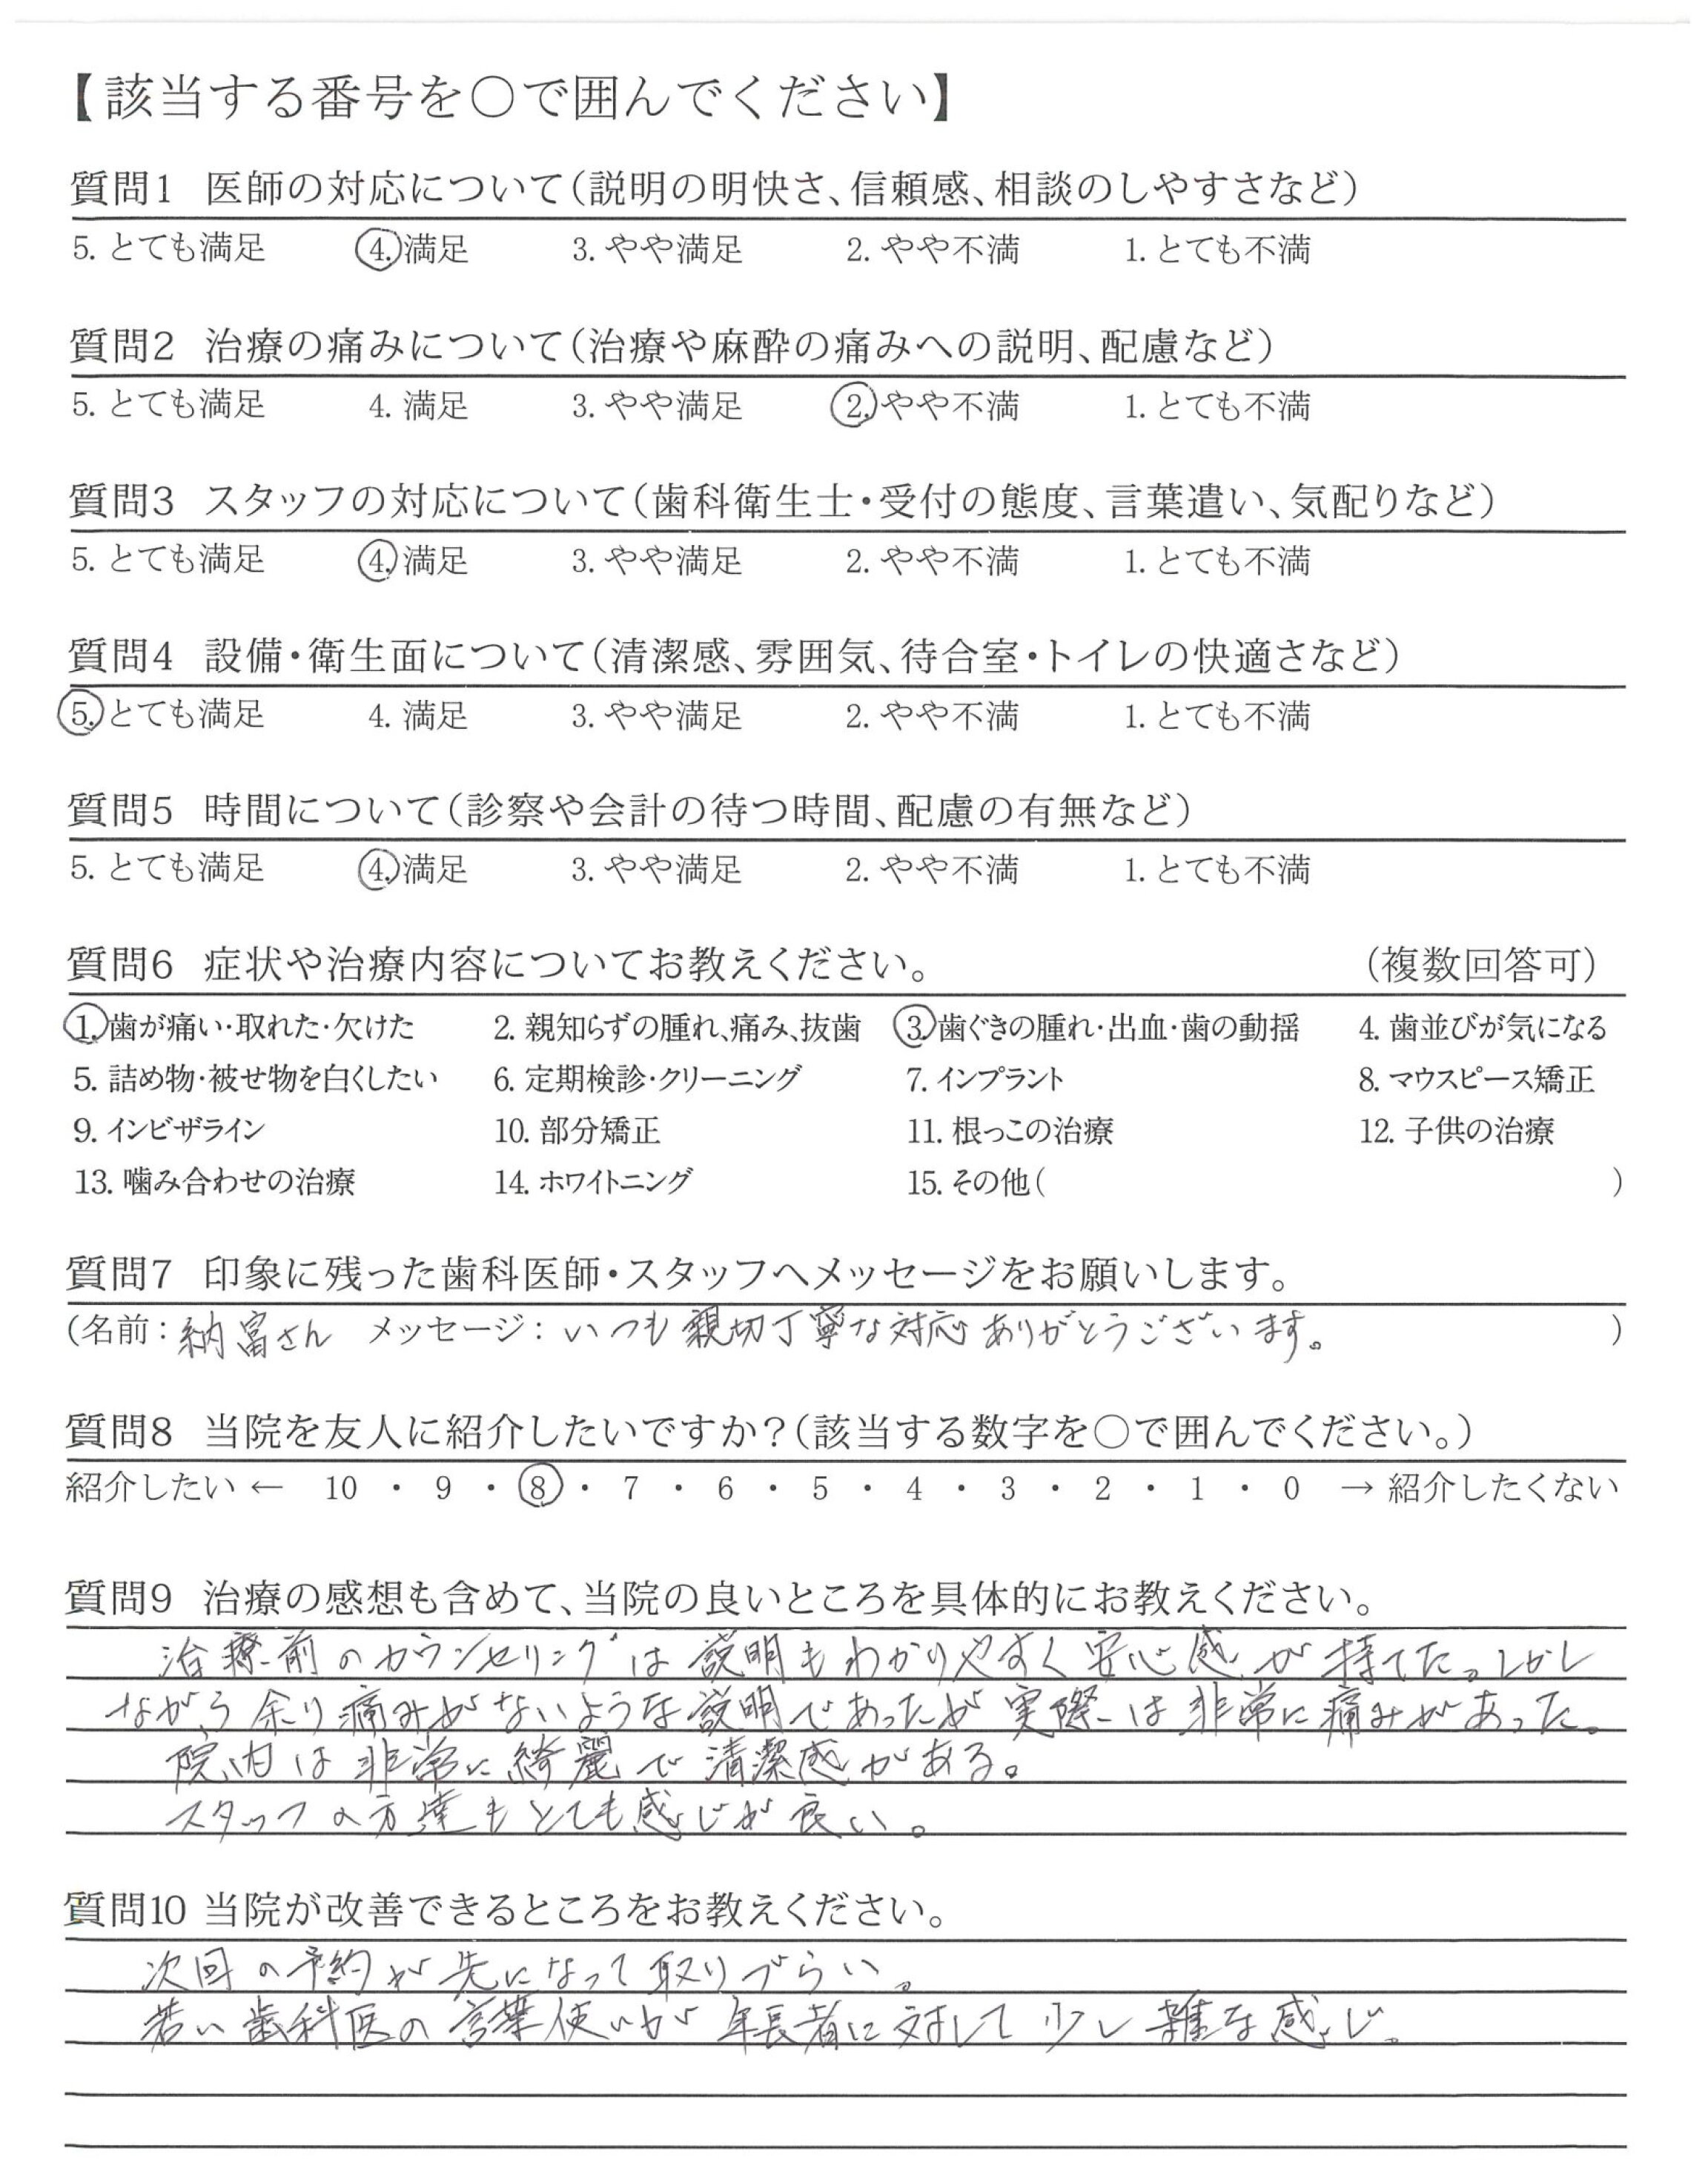 【該当する番号を○で囲んでください】
質問1 医師の対応について(説明の明快さ、信頼感、相談のしやすさなど)
5. とても満足 4. 満足 3. やや満足 2. やや不満 1. とても不満
質問2 治療の痛みについて(治療や麻酔の痛みへの説明、配慮など)
5. とても満足 4. 満足 3. やや満足 2. やや不満 1. とても不満
質問3 スタッフの対応について(歯科衛生士・受付の態度、言葉遣い、気配りなど)
5. とても満足 4. 満足 3. やや満足 2. やや不満 1. とても不満
質問4 設備・衛生面について(清潔感、雰囲気、待合室・トイレの快適さなど)
5. とても満足 4. 満足 3. やや満足 2. やや不満 1. とても不満
質問5 時間について(診察や会計の待つ時間、配慮の有無など)
5. とても満足 4. 満足 3. やや満足 2. やや不満 1. とても不満
質問6 症状や治療内容についてお教えください。 (複数回答可)
1. 歯が痛い・取れた・欠けた 2. 親知らずの腫れ、痛み、抜歯 3. 歯ぐきの腫れ・出血・歯の動揺 4. 歯並びが気になる
5. 詰め物・被せ物を白くしたい 6. 定期検診・クリーニング 7. インプラント 8. マウスピース矯正
9. インビザライン 10. 部分矯正 11. 根っこの治療 12. 子供の治療
13. 噛み合わせの治療 14. ホワイトニング 15. その他( )
質問7 印象に残った歯科医師・スタッフへメッセージをお願いします。
(名前:納富さん メッセージ:いつも親切丁寧な対応ありがとうございます。 )
質問8 当院を友人に紹介したいですか?(該当する数字を○で囲んでください。)
紹介したい ← 10 ・ 9 ・ 8 ・ 7 ・ 6 ・ 5 ・ 4 ・ 3 ・ 2 ・ 1 ・ 0 → 紹介したくない
質問9 治療の感想も含めて、当院の良いところを具体的にお教えください。
治療前のカウンセリングは説明もわかりやすく安心感が持てた。しかし
ながら余り痛みがないような説明であったが実際は非常に痛みがあった。
院内は非常に綺麗で清潔感がある。
スタッフの方達もとても感じが良い。
質問10 当院が改善できるところをお教えください。
次回の予約が先になって取りづらい。
若い歯科医の言葉使いが年長者に対して少し雑な感じ。